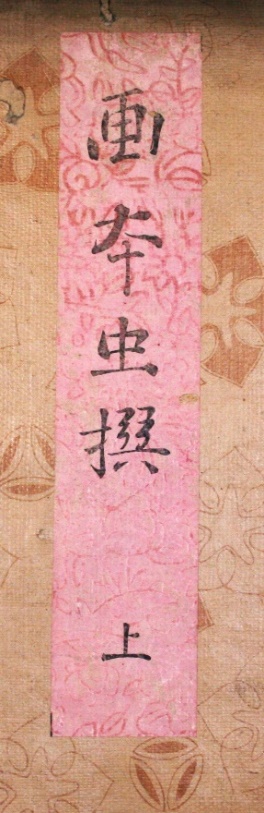 画夲虫撰 上